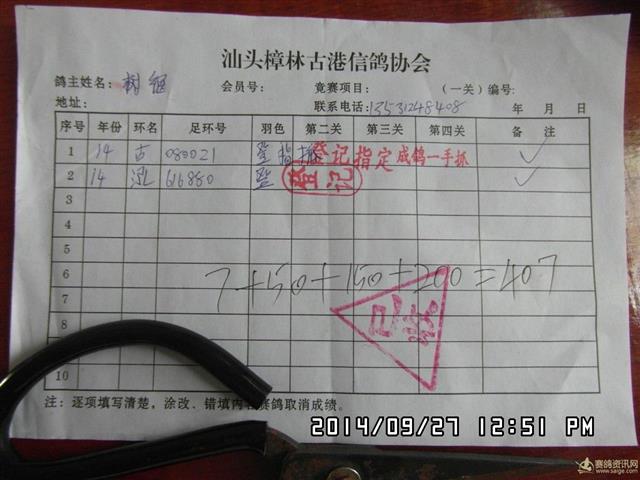 汕头樟林古港信鸽协会
鸽主姓名: 树 会员号: 竟赛项目: (一关)编号:
地址: 联系电话:13531248408 年 月 日
序号 年份 环名 足环号 羽色 第二关 第三关 第四关 备 注
1 14 古 080021 登记指定成鸽一手抓 ✓
2 14 616880 登记 ✓
3
4
5
6 7+50+150+200=407
7 已
8
10
注:逐项填写清楚,涂改、错填内 赛鸽取消成绩。
2014/09/27 12:51 PM
赛鸽资讯网
www.saige.com